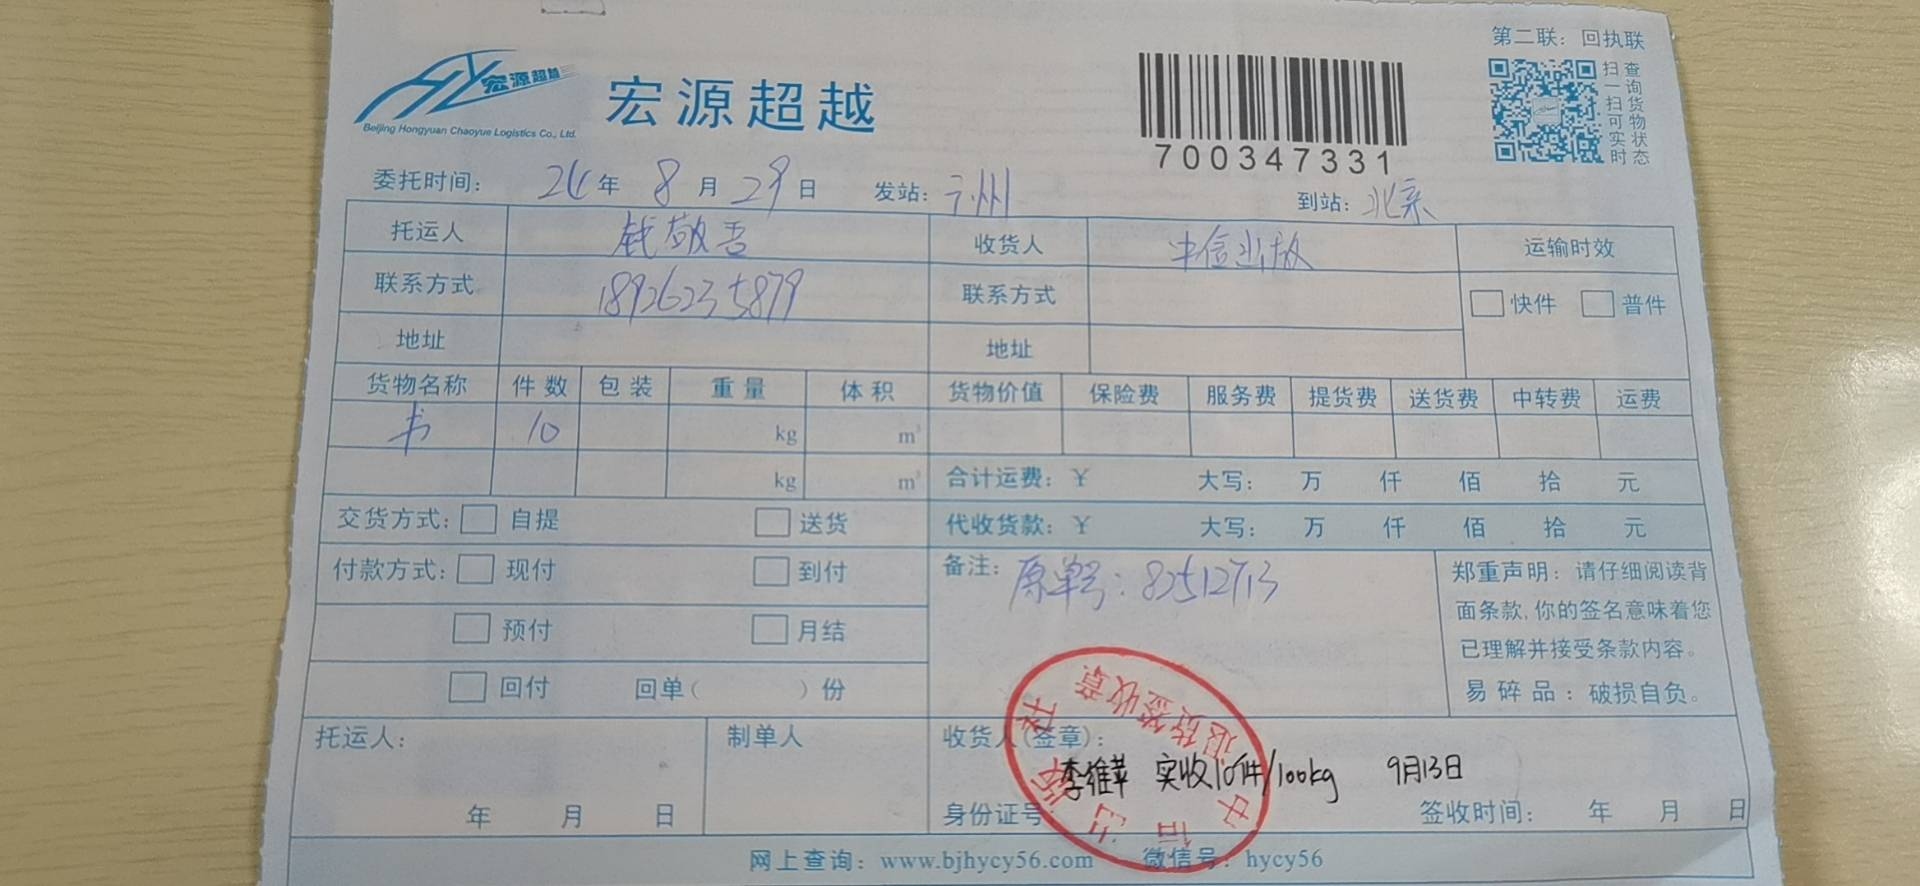 第二联：回执联
宏源超越
Beijing Hongyuan Chaoyue Logistics Co., Ltd.
宏源超越
700347331
扫一扫可实时
查询货物状态
委托时间： 24 年 8 月 29 日 发站：广州 到站：北京
托运人 钱敬吾 收货人 中信出版 运输时效
联系方式 18926235879 联系方式 快件 普件
地址 地址
货物名称 件数 包装 重量 体积 货物价值 保险费 服务费 提货费 送货费 中转费 运费
书 10 kg m³
kg m³ 合计运费：¥ 大写： 万 仟 佰 拾 元
交货方式： 自提 送货 代收货款：¥ 大写： 万 仟 佰 拾 元
付款方式： 现付 到付 备注：原单号：82512713
预付 月结
回付 回单（ ）份
郑重声明：请仔细阅读背
面条款，你的签名意味着您
已理解并接受条款内容。
易碎品：破损自负。
托运人： 制单人 收货人（签章）：
李维苹 实收10件/100kg 9月13日
年 月 日 身份证号 签收时间： 年 月 日
中信出版
退货签收章
网上查询：www.bjhycy56.com 微信号：hycy56